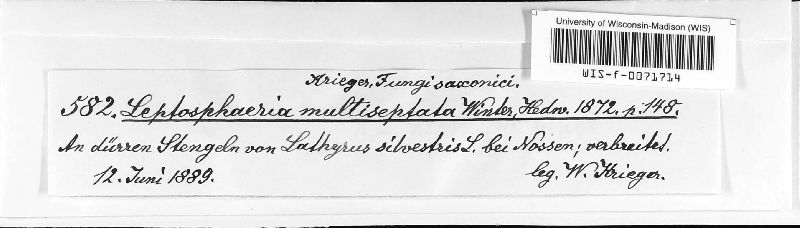 University of Wisconsin-Madison (WIS)
WIS-f-0071714
Krieger, Fungi saxonici.
582. Leptosphaeria multiseptata Winter, Hedw. 1872. p. 148.
An dürren Stengeln von Lathyrus silvestris L. bei Nossen; verbreitet.
12. Juni 1889.
leg. W. Krieger.